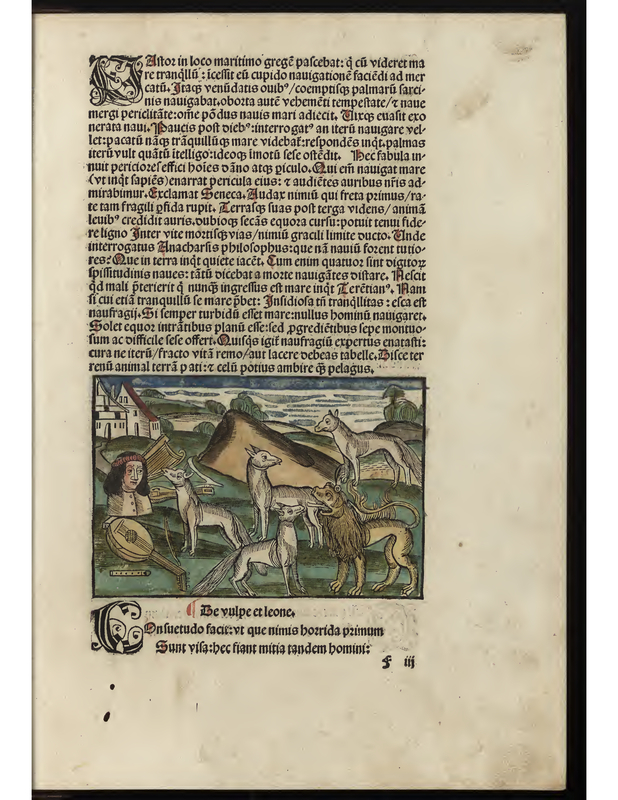 PAstor in loco maritimo gregē pascebat: q̄ cū videret ma
re tranqllū: īcessit eū cupido nauigationē faciēdi ad mer
catū. Itaqȝ venūdatis ouibꝰ/coemptisqȝ palmarū sarci-
nis nauigabat. oborta autē vehemēti tempestate/⁊ naue
mergi periclitāte: om̄e pōdus nauis mari adiecit. Uixqȝ euasit exo
nerata naui. Paucis post diebꝰ: interrogatꝰ an iterū nauigare vel-
let: pacatū nāqȝ tranquillūqȝ mare videbat̄: respondēs inqt. palmas
iterū vult quātū ītelligo: ideoqȝ imotū sese ostēdit. Hec fabula in-
nuit periciores effici hoīes dāno atqȝ ꝑiculo. Qui em̄ nauigat mare
(vt inqt sapiēs) enarrat pericula eius: ⁊ audiētes auribus nr̄is ad-
mirabimur. Exclamat Seneca. Audax nimiū qui freta primus/ra-
te tam fragili ꝑfida rupit. Terrasqȝ suas post terga videns/animā
leuibꝰ credidit auris. dubioqȝ secās equora cursu: potuit tenui fide-
re ligno Inter vite mortisqȝ vias/nimiū gracili limite ducto. Unde
interrogatus Anacharsis philosophus: que nā nauiū forent tutio-
res? Que in terra inqt quiete iacēt. Cum enim quatuor sint digitoꝝ
spissitudinis naues: tātū dicebat a morte nauigātes distare. Nescit
qd mali p̄terierit q̄ nunqȝ ingressus est mare inqt Terētianꝰ. Nam
si cui etiā tranquillū se mare p̄bet: Insidiosa tn̄ tranqllitas: esca est
naufragij. Si semper turbidū esset mare: nullus hominū nauigaret.
Solet equor intrātibus planū esse: sed ꝓgrediētibus sepe montuo-
sum ac difficile sese offert. Quisqȝ igit̄ naufragiū expertus enatasti:
cura ne iterū/fracto vitā remo/aut lacere debeas tabelle. Disce ter
renū animal terrā pati: ⁊ celū potius ambire qȝ pelagus.
¶ De vulpe et leone.
COnsuetudo facit: vt que nimis horrida primum
Sunt visa: hec fiant mitia tandem homini:
f iij